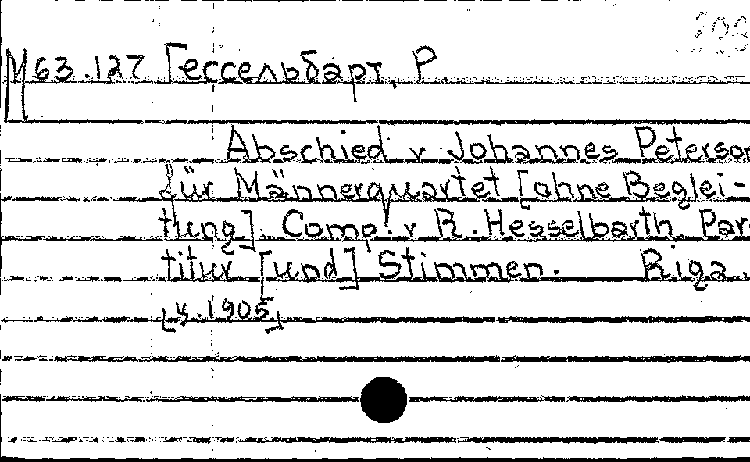 M63.127 Гессельбарт, Р.
Abschied v Johannes Peterson
für Männerquartet [ohne Beglei-
tung]. Comp. v R. Hesselbarth. Par-
titur [und] Stimmen. Riga,
[у.1905]